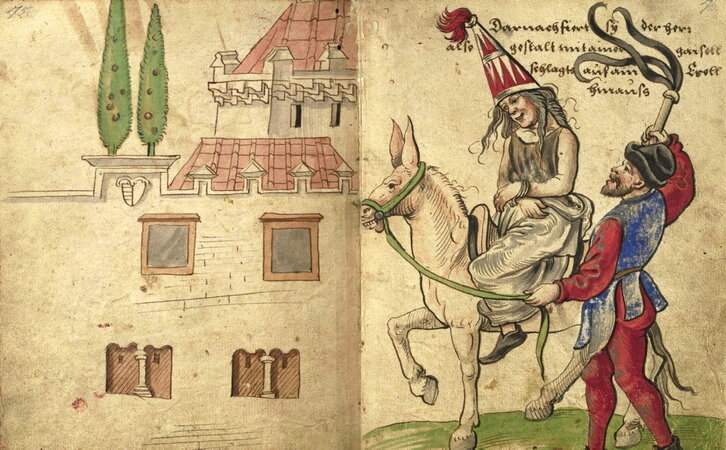 75.
Darnach fiert sy der herr
also gestalt mit ainer gaisell
schlagts auf am Esell
hinauss